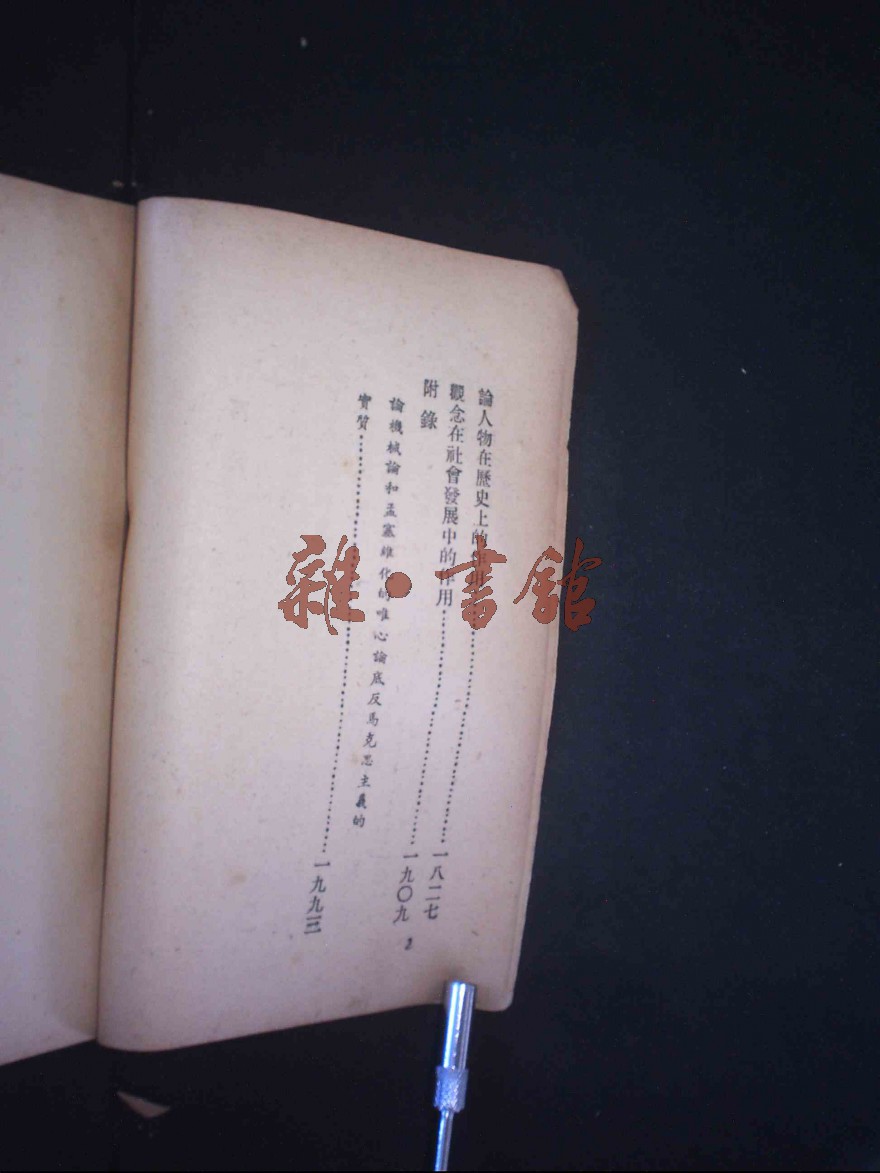 論人物在歷史上的作用……一八二七
觀念在社會發展中的作用……一九〇九
附錄
論機械論和孟塞維化的唯心論底反馬克思主義的
實質……一九九三
2
雜·書館